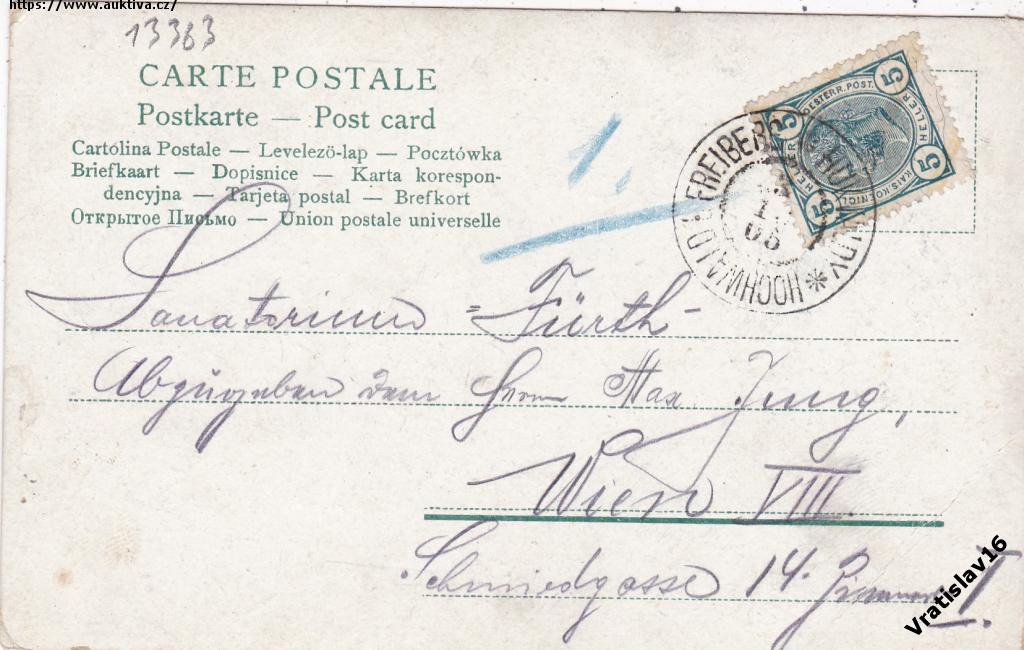 https://www.auktiva.cz/
13383
CARTE POSTALE
Postkarte — Post card
Cartolina Postale — Levelezö-lap — Pocztówka
Briefkaart — Dopisnice — Karta korespon-
dencyjna — Tarjeta postal — Brefkort
Открытое Письмо — Union postale universelle
1.
5 OESTERR. POST. 5
HELLER HELLER
5 KAIS. KOENIGL. 5
HOCHWALD FREIBERG
05
Sanatorium Fürth
Abzugeben dem Herrn Max Jung,
Wien VIII.
Schmiedgasse 14. I.
Vratislav16